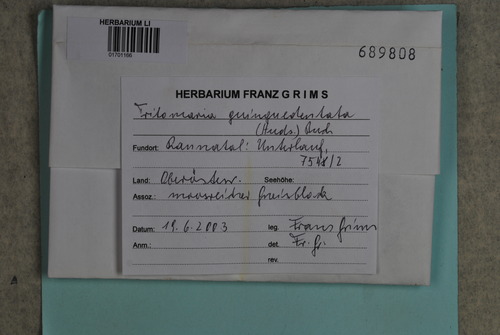 HERBARIUM LI
01701166
689808
HERBARIUM FRANZ G R I M S
Tritomaria quinquedentata
(Huds.) Buch
Fundort: Rannatal: Unterlauf,
7548/2
Land: Oberösterr. Seehöhe:
Assoz.: moosreicher Gneisblock
Datum: 19.6.2003 leg. Franz Grims
Anm.: det. Fr. Gr
rev.